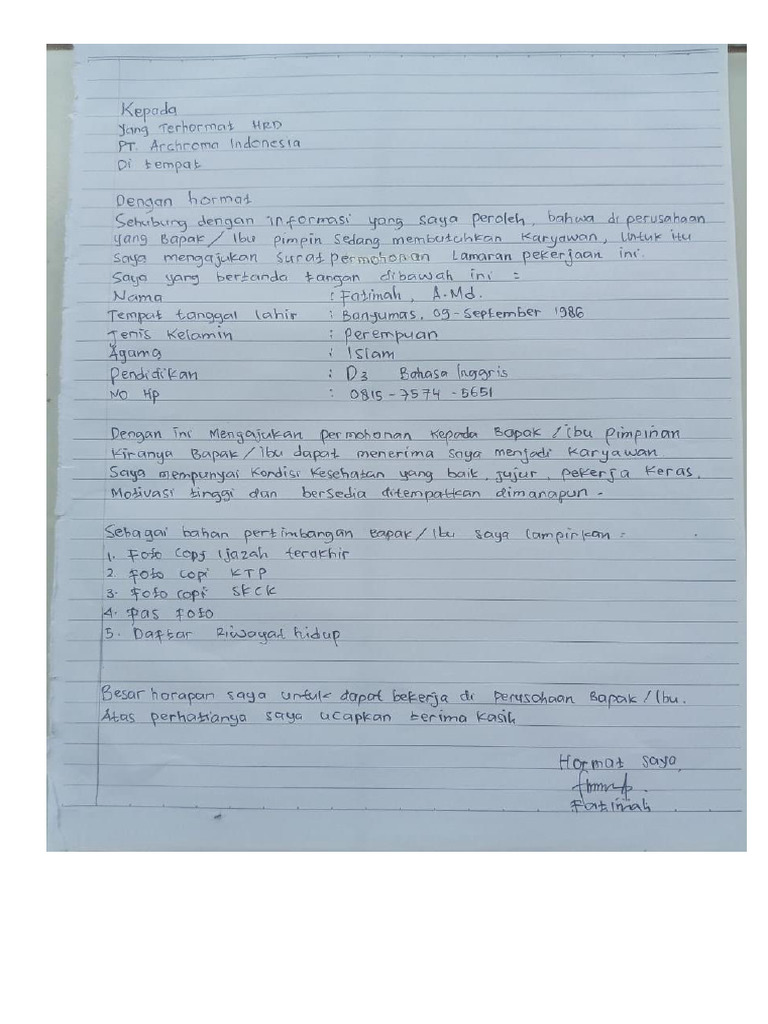 Kepada
Yang Terhormat HRD
PT. Archroma Indonesia
Di tempat
Dengan hormat
Sehubung dengan informasi yang saya peroleh, bahwa di perusahaan
yang Bapak / Ibu pimpin sedang membutuhkan karyawan, Untuk itu
saya mengajukan surat permohonan lamaran pekerjaan ini.
Saya yang bertanda tangan dibawah ini :
Nama : Fatimah, A.Md.
Tempat tanggal lahir : Banyumas, 09-September 1986
Jenis Kelamin : Perempuan
Agama : Islam
Pendidikan : D3 Bahasa Inggris
NO Hp : 0815-7574-5651
Dengan ini Mengajukan permohonan kepada Bapak / ibu Pimpinan
Kiranya Bapak / Ibu dapat menerima saya menjadi karyawan
Saya mempunyai kondisi kesehatan yang baik, jujur, pekerja keras,
Motivasi tinggi dan bersedia ditempatkan dimanapun.
Sebagai bahan pertimbangan Bapak / Ibu saya lampirkan :
1. Foto Copy Ijazah terakhir
2. Foto copi KTP
3. Foto copi SKCK
4. Pas Foto
5. Daftar Riwayat hidup
Besar harapan saya untuk dapat bekerja di perusahaan Bapak / Ibu.
Atas perhatianya saya ucapkan terima kasih
Hormat saya,
Fatimah